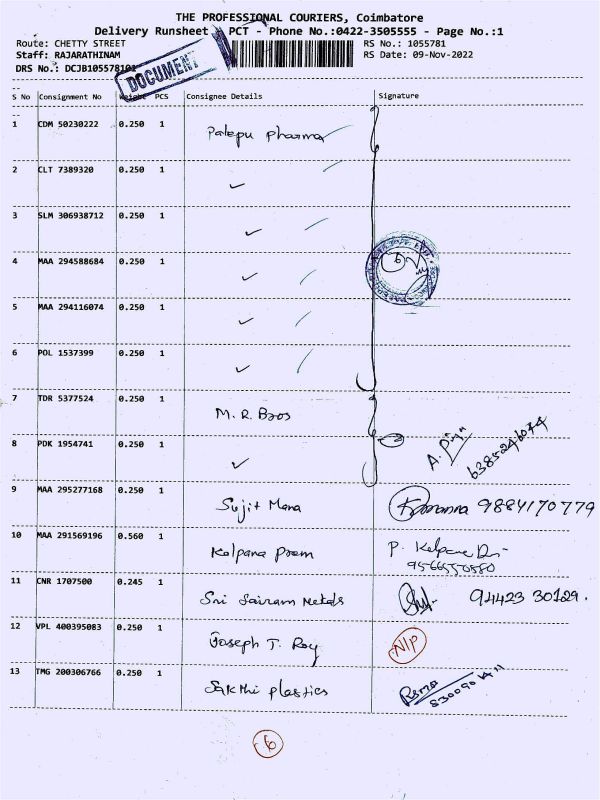 THE PROFESSIONAL COURIERS, Coimbatore
Delivery Runsheet PCT - Phone No.:0422-3505555 - Page No.:1
Route: CHETTY STREET RS No.: 1055781
Staff: RAJARATHINAM RS Date: 09-Nov-2022
DRS No.: DCJB1055781
DOCUMENT
S No Consignment No Weight PCS Consignee Details Signature
1 CDM 50230222 0.250 1 Palepu pharma
2 CLT 7389320 0.250 1 ✓
3 SLM 306938712 0.250 1 ✓
4 MAA 294588684 0.250 1 ✓
5 MAA 294116074 0.250 1 ✓
6 POL 1537399 0.250 1 ✓
7 TDR 5377524 0.250 1 M.R. Bros
8 PDK 1954741 0.250 1 ✓
9 MAA 295277168 0.250 1 Sujit Mana 9884170779
10 MAA 291569196 0.560 1 Kalpana Prem P. Kalpana
11 CNR 1707500 0.245 1 Sri Sairam Metals 94423 30129.
12 VPL 400395083 0.250 1 Joseph T. Roy N/P
13 TMG 200306766 0.250 1 Sakthi plastics
6